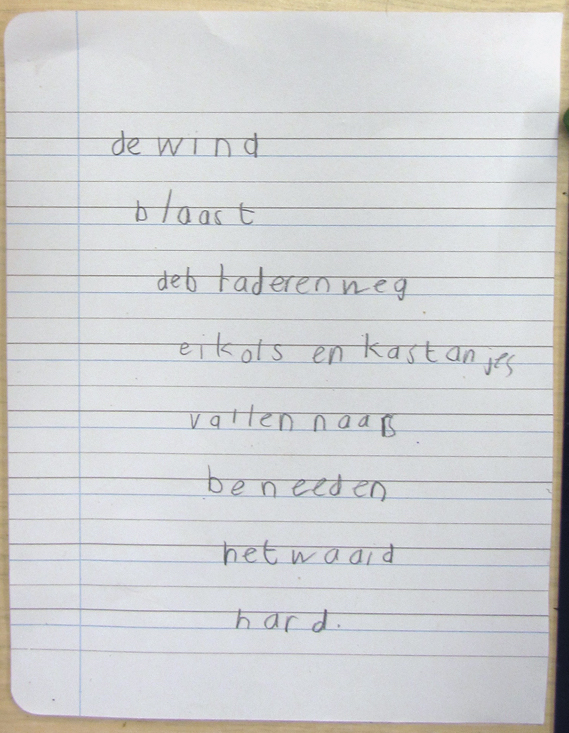 de wind
blaast
deb taderen weg
eikols en kastanjes
vallen naar
beneeden
het waaid
hard.